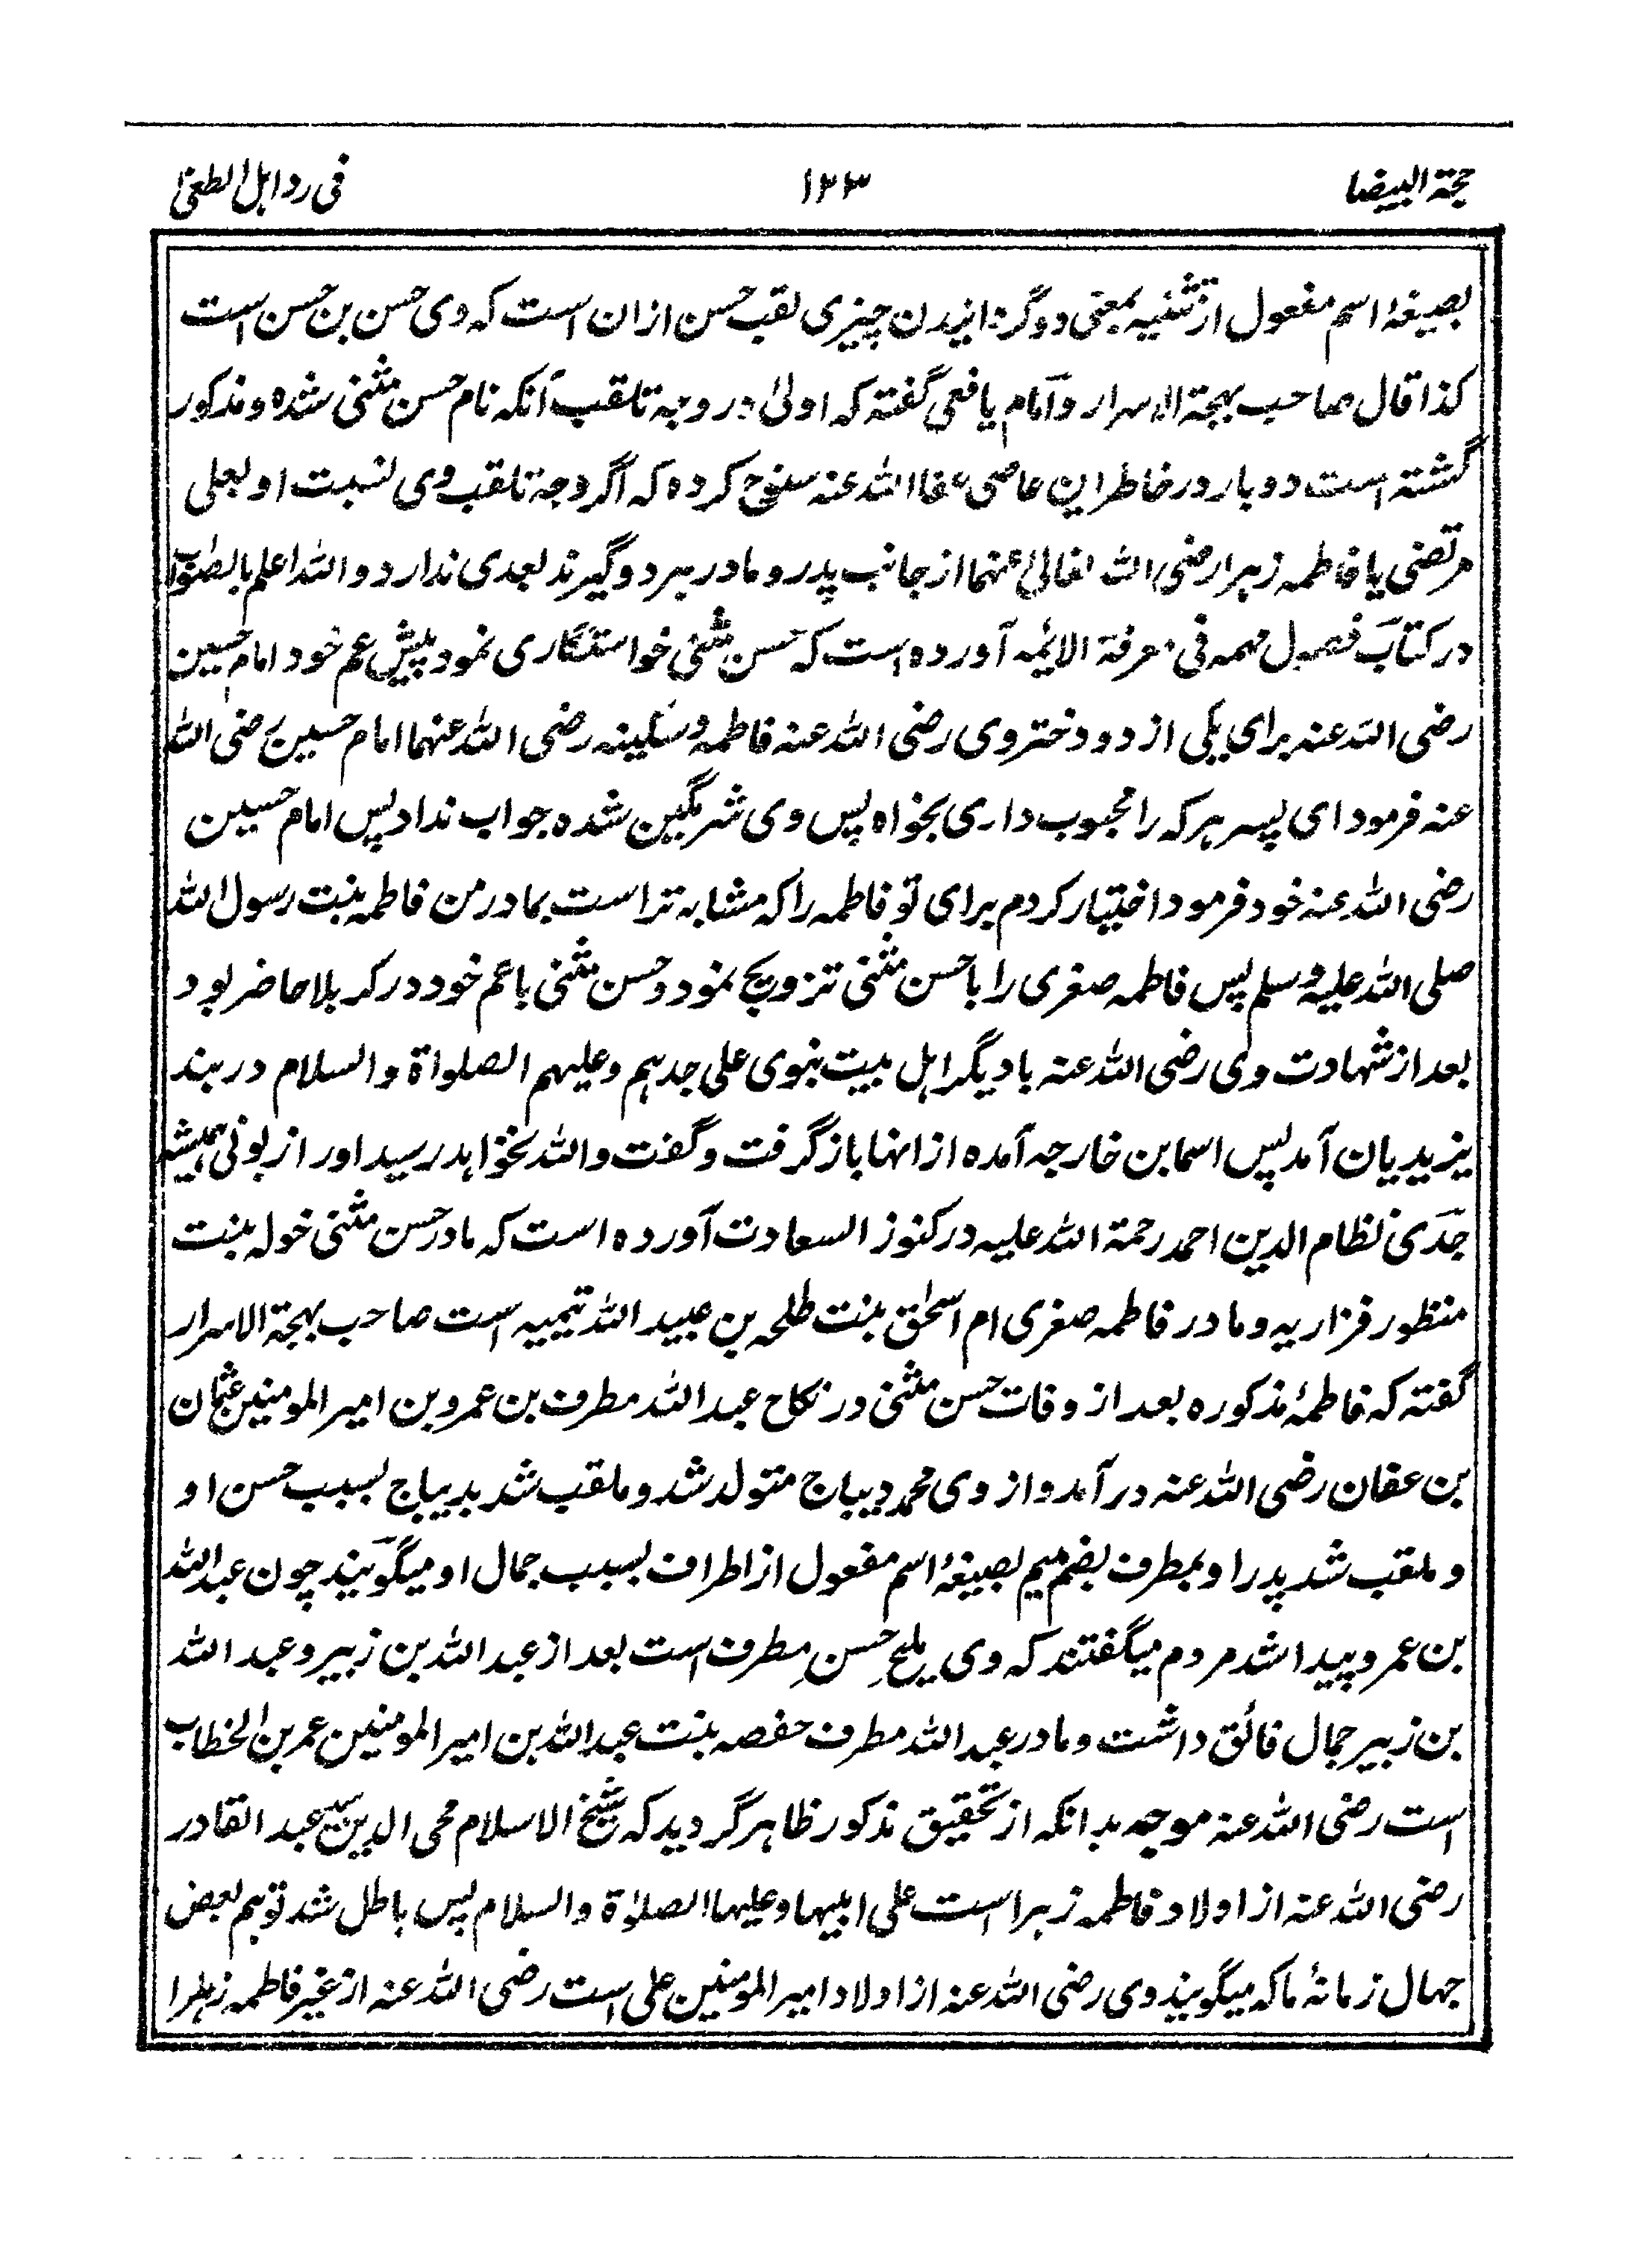 حجۃ البیضا
۱۲۳
فی رد اہل الطغیٰ
بصیغۂ اسم مفعول از تثنیہ بمعنی دو گردانیدن چیزی لقب حسن ازان است کہ وی حسن بن حسن است
کذا قال صاحب بہجۃ الاسرار و امام یافعی گفتہ کہ اولیٰ در وجہ تلقب آنکہ نام حسن مثنی شدہ و مذکور
گشتہ است دوبار در خاطر این عاصی عفا اللہ عنہ سنوح کردہ کہ اگر وجہ تلقب وی نسبت او بعلی
مرتضی یا فاطمہ زہرا رضی اللہ تعالیٰ عنہما از جانب پدر و مادر ہر دو گیرند بعدی ندارد و اللہ اعلم بالصواب
در کتاب فصول مہمہ فی معرفۃ الائمہ آوردہ است کہ حسن مثنی خواستگاری نمود پیش عم خود امام حسین
رضی اللہ عنہ برای یکی از دو دختر وی رضی اللہ عنہ فاطمہ و سکینہ رضی اللہ عنہما امام حسین رضی اللہ
عنہ فرمود ای پسر ہر کہ را محبوب داری بخواہ پس وی شرمگین شدہ جواب نداد پس امام حسین
رضی اللہ عنہ خود فرمود اختیار کردم برای تو فاطمہ را کہ مشابہ تر است بمادر من فاطمہ بنت رسول اللہ
صلی اللہ علیہ وسلم پس فاطمہ صغری را با حسن مثنی تزویج نمود و حسن مثنی با عم خود در کربلا حاضر بود
بعد از شہادت وی رضی اللہ عنہ با دیگر اہل بیت نبوی علی جدہم وعلیہم الصلواۃ والسلام در بند
یزیدیان آمد پس اسما بن خارجہ آمدہ از انہا باز گرفت و گفت واللہ نخواہد رسید اور از بونی ہمیشہ
جدی نظام الدین احمد رحمۃ اللہ علیہ در کنوز السعادت آوردہ است کہ مادر حسن مثنی خولہ بنت
منظور فزاریہ و مادر فاطمہ صغری ام اسحٰق بنت طلحہ بن عبید اللہ تیمیہ است صاحب بہجۃ الاسرار
گفتہ کہ فاطمۂ مذکورہ بعد از وفات حسن مثنی در نکاح عبد اللہ مطرف بن عمرو بن امیر المومنین عثمان
بن عفان رضی اللہ عنہ در آمد و از وی محمد دیباج متولد شد و ملقب شد بدیباج بسبب حسن او
و ملقب شد پدر او بمطرف بضم میم بصیغۂ اسم مفعول از اطراف بسبب جمال او میگویند چون عبد اللہ
بن عمرو پیدا شد مردم میگفتند کہ وی ملیح حسنِ مطرف است بعد از عبد اللہ بن زبیر و عبد اللہ
بن زبیر جمال فائق داشت و مادر عبد اللہ مطرف حفصہ بنت عبد اللہ بن امیر المومنین عمر بن الخطاب
است رضی اللہ عنہ موجہ بدانکہ از تحقیق مذکور ظاہر گردید کہ شیخ الاسلام محی الدین سید عبد القادر
رضی اللہ عنہ از اولاد فاطمہ زہرا است علی ابیہا وعلیہا الصلوٰۃ والسلام پس باطل شد توہم بعض
جہال زمانۂ ما کہ میگویند وی رضی اللہ عنہ از اولاد امیر المومنین علی است رضی اللہ عنہ از غیر فاطمہ زہرا